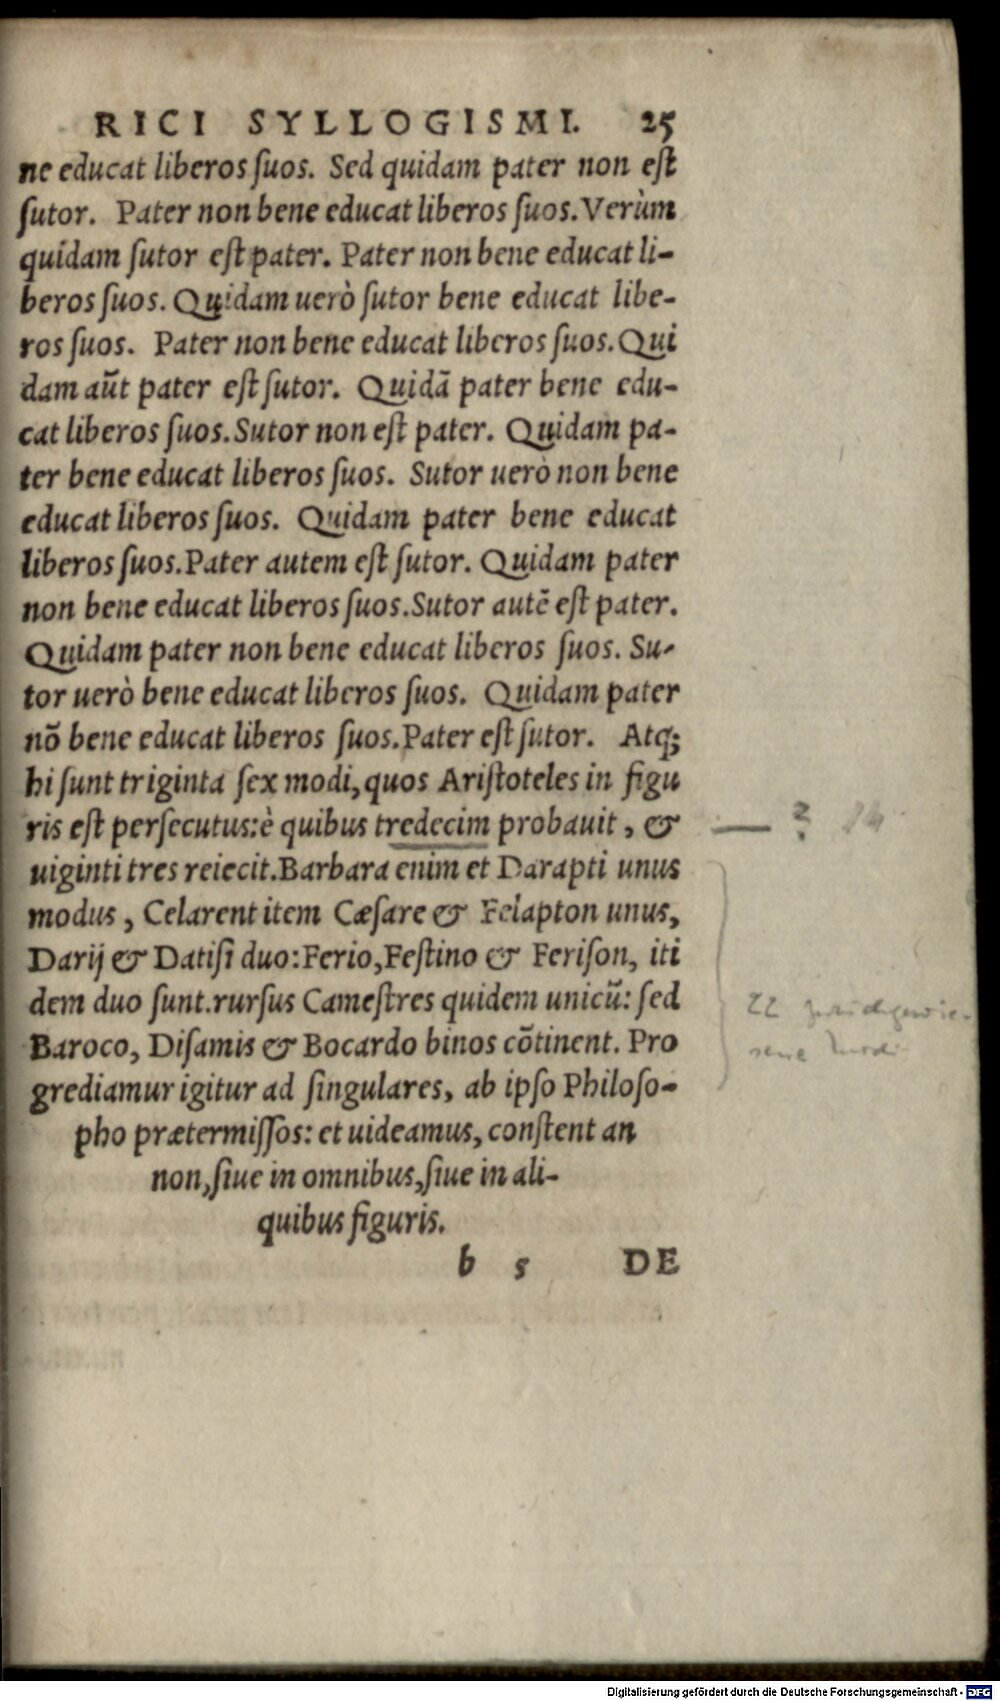 RICI SYLLOGISMI. 25
ne educat liberos ſuos. Sed quidam pater non eſt
ſutor. Pater non bene educat liberos ſuos. Verùm
quidam ſutor eſt pater. Pater non bene educat li-
beros ſuos. Quidam uerò ſutor bene educat libe-
ros ſuos. Pater non bene educat liberos ſuos. Qui
dam aũt pater eſt ſutor. Quidã pater bene edu-
cat liberos ſuos. Sutor non eſt pater. Quidam pa-
ter bene educat liberos ſuos. Sutor uerò non bene
educat liberos ſuos. Quidam pater bene educat
liberos ſuos. Pater autem eſt ſutor. Quidam pater
non bene educat liberos ſuos. Sutor autẽ eſt pater.
Quidam pater non bene educat liberos ſuos. Su-
tor uerò bene educat liberos ſuos. Quidam pater
nõ bene educat liberos ſuos. Pater eſt ſutor. Atq;
hi ſunt triginta ſex modi, quos Ariſtoteles in figu
ris eſt perſecutus: è quibus tredecim probauit, &
? 14
uiginti tres reiecit. Barbara enim et Darapti unus
modus, Celarent item Cæſare & Felapton unus,
Darij & Datiſi duo: Ferio, Feſtino & Feriſon, iti
dem duo ſunt. rurſus Cameſtres quidem unicũ: ſed
22
Baroco, Diſamis & Bocardo binos cõtinent. Pro
grediamur igitur ad ſingulares, ab ipſo Philoſo-
pho prætermiſſos: et uideamus, conſtent an
non, ſiue in omnibus, ſiue in ali-
quibus figuris.
b 5 DE
Digitalisierung gefördert durch die Deutsche Forschungsgemeinschaft - DFG